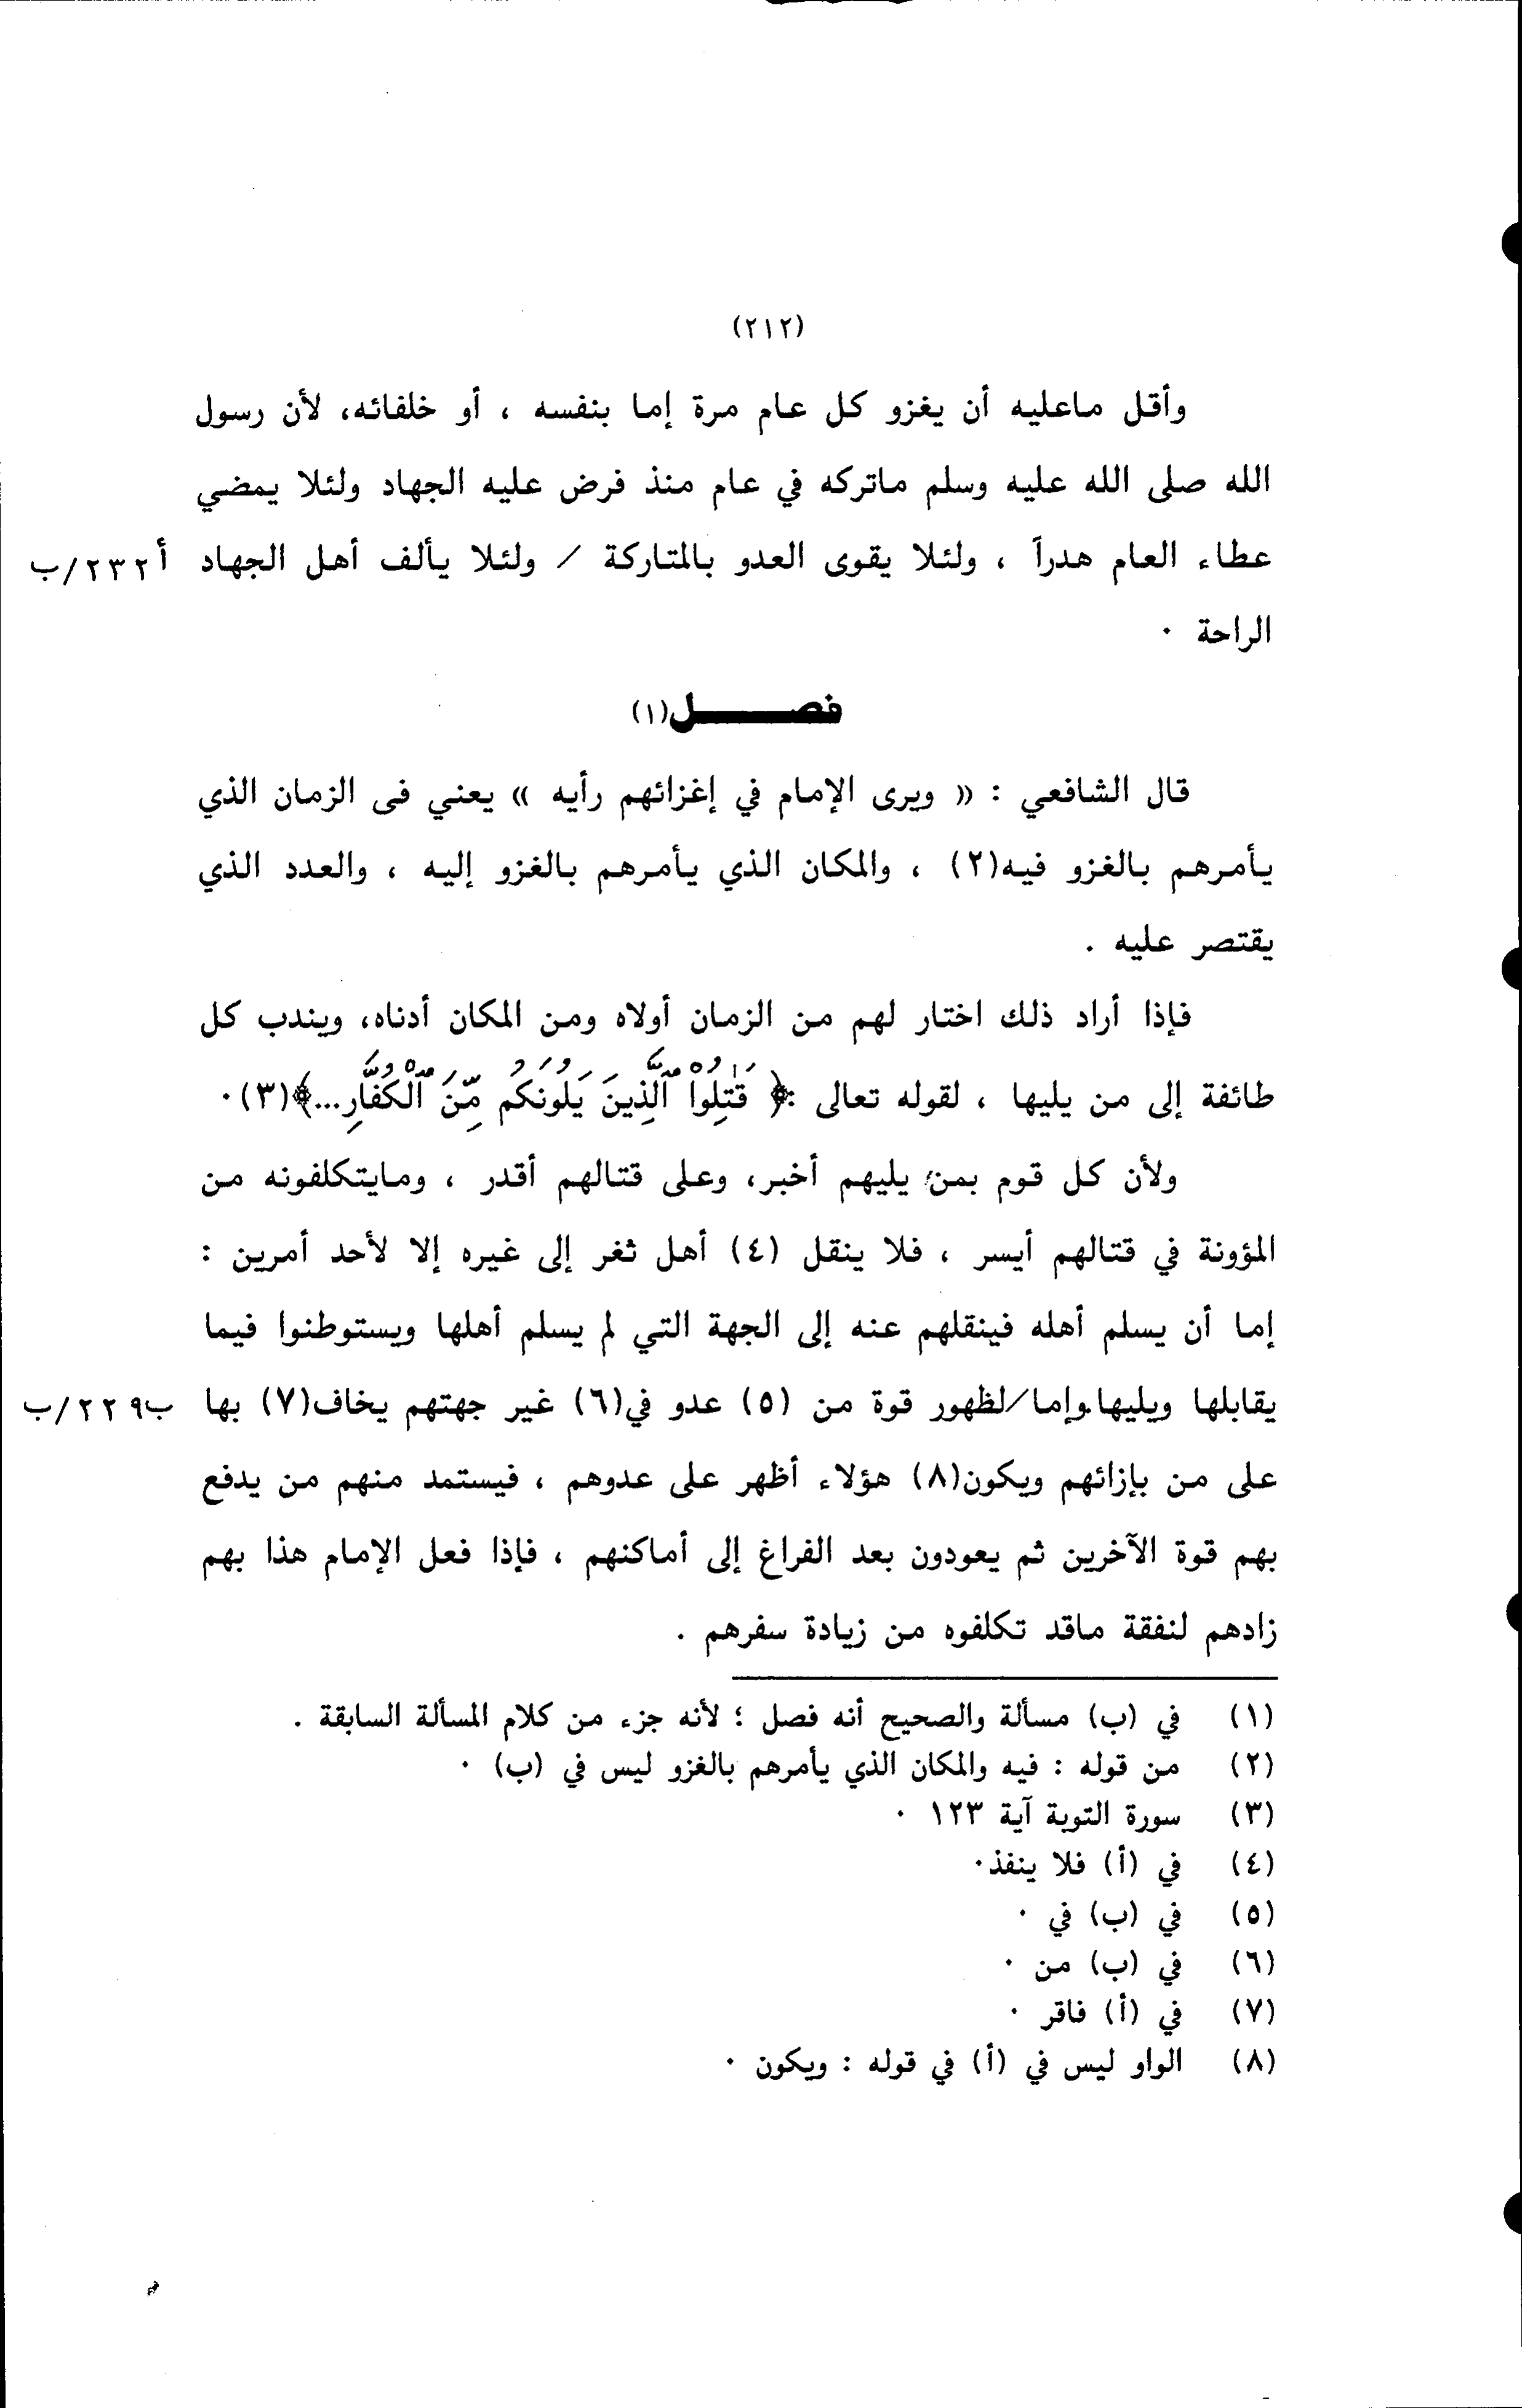 (٢١٢)
وأقل ماعليه أن يغزو كل عام مرة إما بنفسه ، أو خلفائه، لأن رسول
الله صلى الله عليه وسلم ماتركه في عام منذ فرض عليه الجهاد ولئلا يمضي
عطاء العام هدراً ، ولئلا يقوى العدو بالمتاركة / ولئلا يألف أهل الجهاد أ٢٣٢/ب
الراحة ٠
فصـــــل(١)
قال الشافعي : « ويرى الإمام في إغزائهم رأيه » يعني فى الزمان الذي
يأمرهم بالغزو فيه(٢) ، والمكان الذي يأمرهم بالغزو إليه ، والعدد الذي
يقتصر عليه .
فإذا أراد ذلك اختار لهم من الزمان أولاه ومن المكان أدناه، ويندب كل
طائفة إلى من يليها ، لقوله تعالى :﴿ قَٰتِلُوا۟ ٱلَّذِينَ يَلُونَكُم مِّنَ ٱلْكُفَّارِ...﴾(٣)٠
ولأن كل قوم بمن يليهم أخبر، وعلى قتالهم أقدر ، ومايتكلفونه من
المؤونة في قتالهم أيسر ، فلا ينقل (٤) أهل ثغر إلى غيره إلا لأحد أمرين :
إما أن يسلم أهله فينقلهم عنه إلى الجهة التي لم يسلم أهلها ويستوطنوا فيما
يقابلها ويليها.وإما/لظهور قوة من (٥) عدو في(٦) غير جهتهم يخاف(٧) بها ب٢٢٩/ب
على من بإزائهم ويكون(٨) هؤلاء أظهر على عدوهم ، فيستمد منهم من يدفع
بهم قوة الآخرين ثم يعودون بعد الفراغ إلى أماكنهم ، فإذا فعل الإمام هذا بهم
زادهم لنفقة ماقد تكلفوه من زيادة سفرهم .
(١) في (ب) مسألة والصحيح أنه فصل ؛ لأنه جزء من كلام المسألة السابقة .
(٢) من قوله : فيه والمكان الذي يأمرهم بالغزو ليس في (ب) ٠
(٣) سورة التوبة آية ١٢٣ ٠
(٤) في (أ) فلا ينفذ٠
(٥) في (ب) في ٠
(٦) في (ب) من ٠
(٧) في (أ) فاقر ٠
(٨) الواو ليس في (أ) في قوله : ويكون ٠